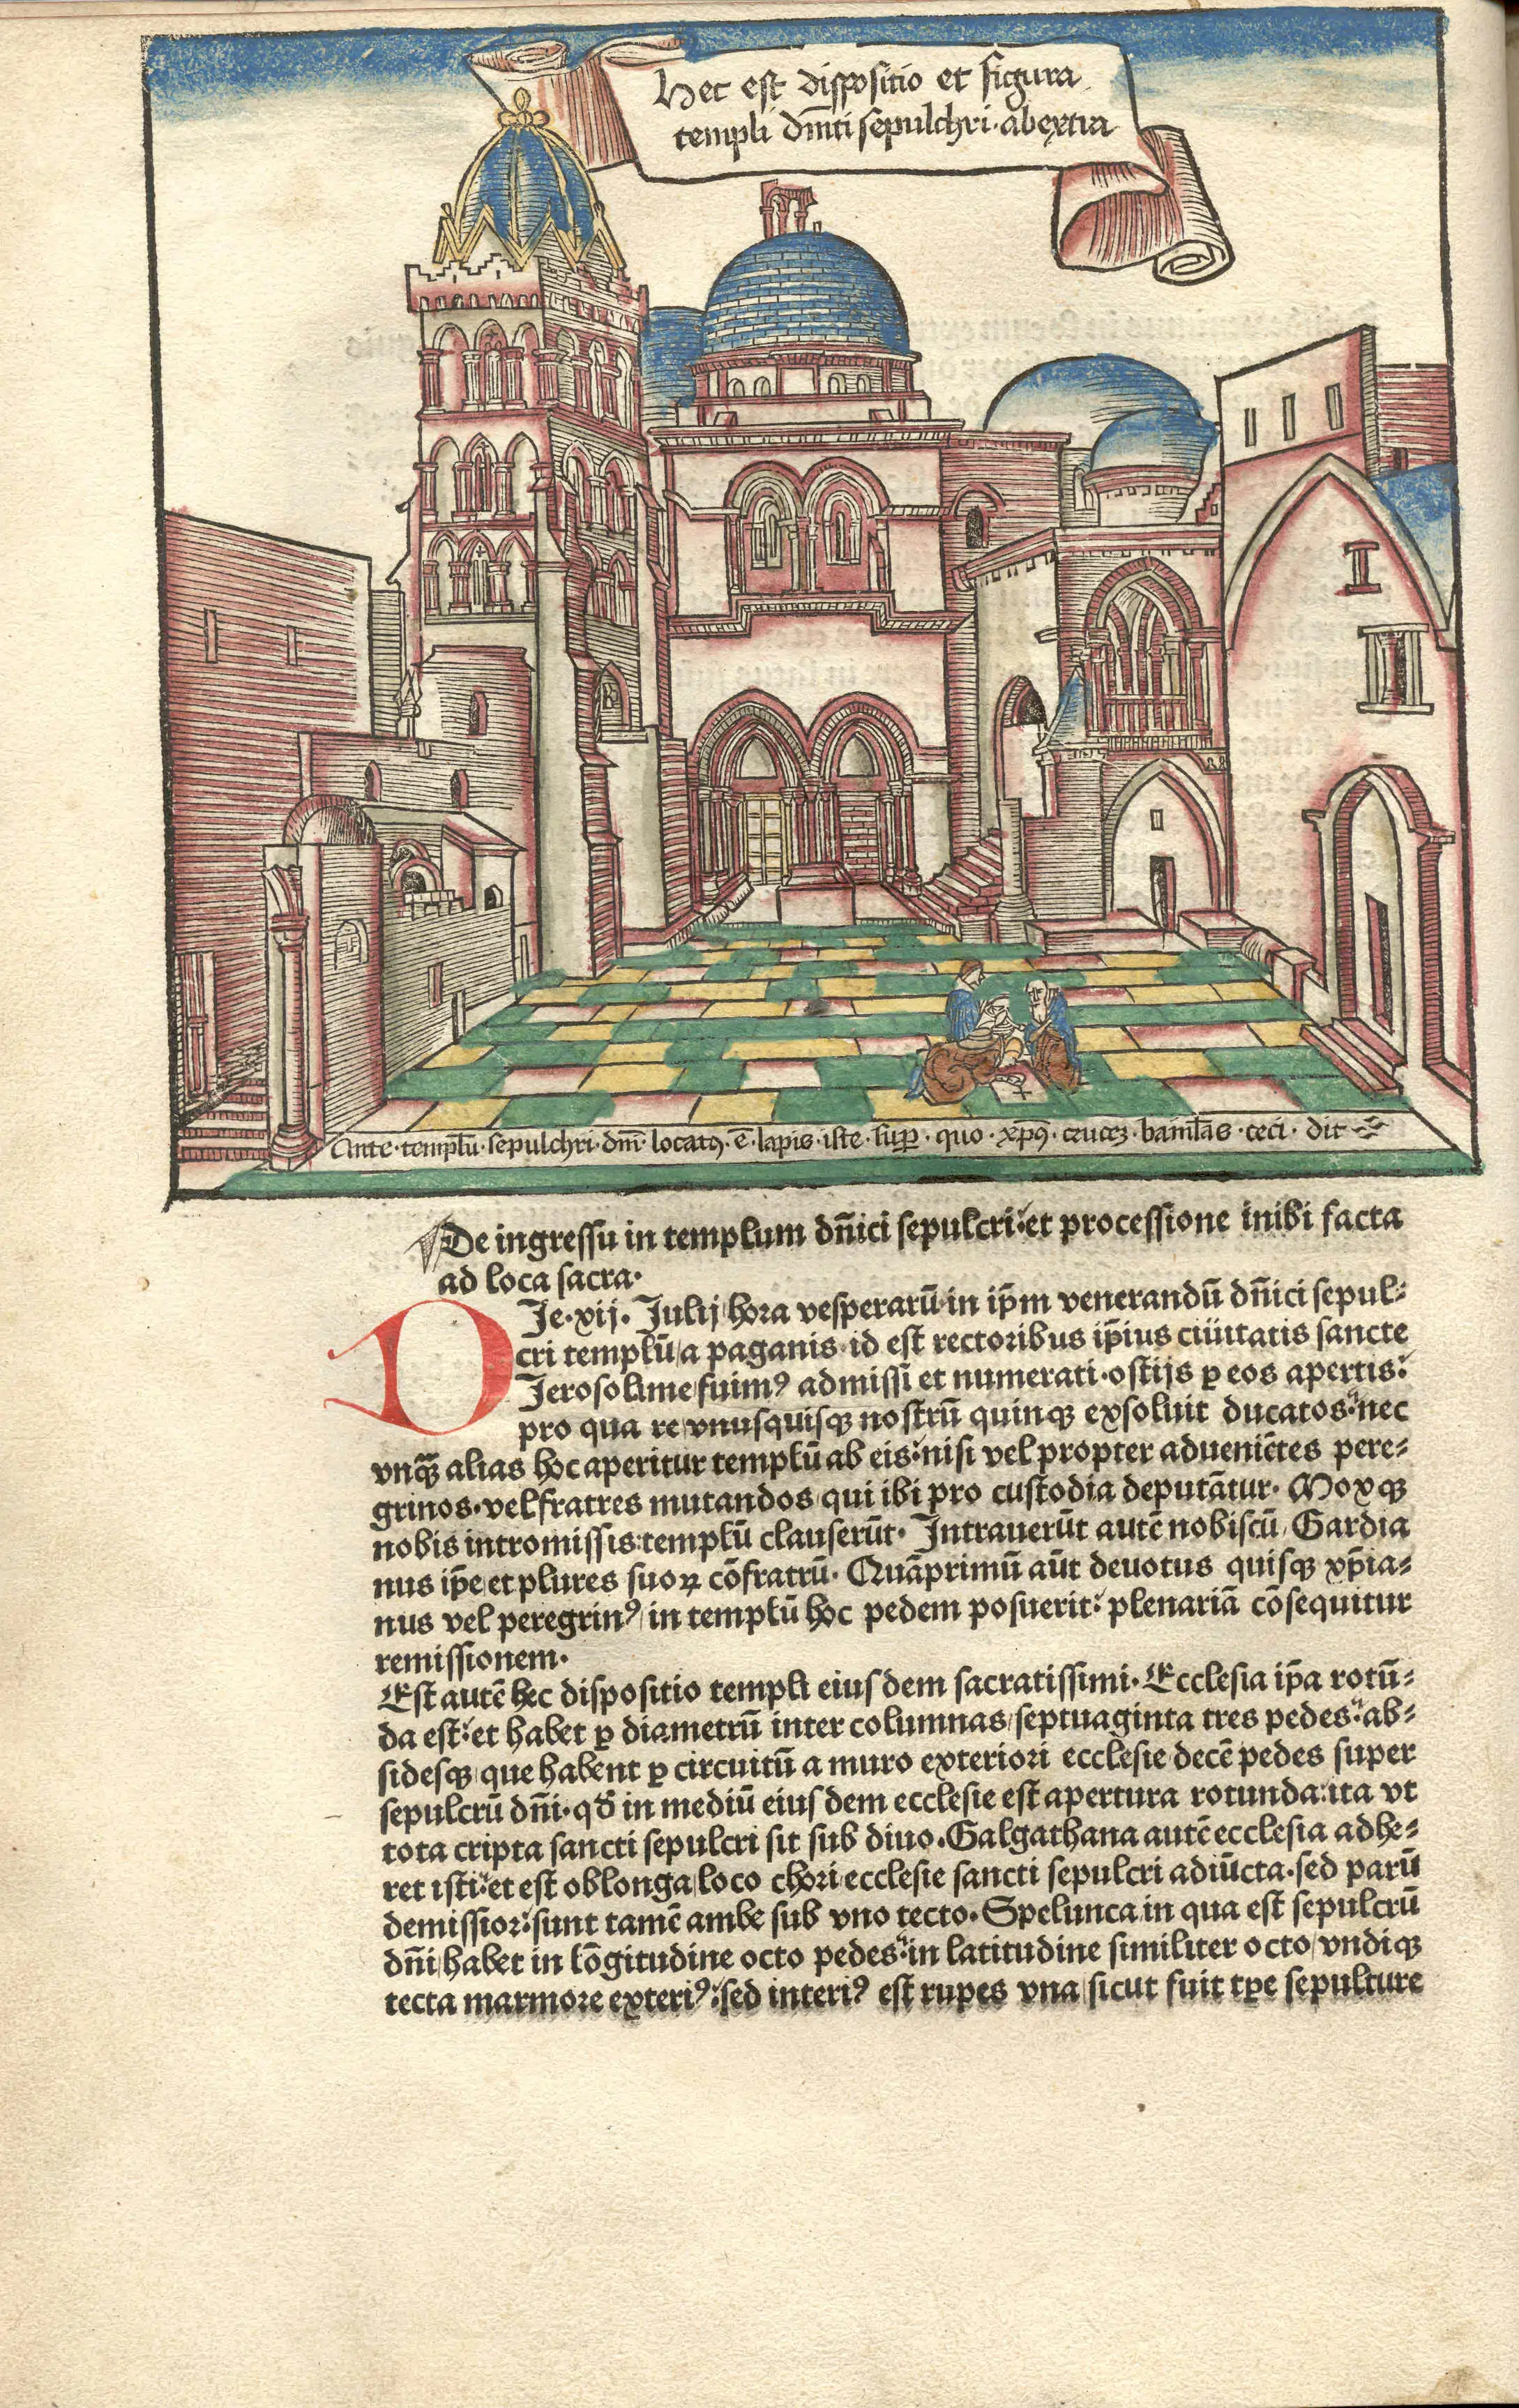 Hec est dispositio et figura
templi dm̄ti sepulchri · abextra
Ante · templū · sepulchri · dm̄ · locatꝰ · ē · lapis · iste · suꝑ · quo · xp̄ꝰ · cruceꝫ · baiulās · ceci · dit
De ingressu in templum dn̄ici sepulcri: et processione inibi facta
ad loca sacra.
DIe. xij. Julij / hora vesperarū in ip̄m venerandū dn̄ici sepul-
cri templū / a paganis id est rectoribus ip̄ius ciuitatis sancte
Jerosolime / fuimꝰ admissi et numerati. ostijs ꝑ eos apertis:
pro qua re / vnusquisqꝫ nostrū quinqꝫ exsoluit ducatos: nec
vnqꝫ̄ alias hoc aperitur templū ab eis: nisi vel propter adueniētes pere-
grinos. vel fratres mutandos / qui ibi pro custodia deputātur. Moxqꝫ
nobis intromissis: templū clauserūt. Intrauerūt autē nobiscū / Gardia
nus ip̄e / et plures suoꝝ cōfratrū. Quāprimū aūt deuotus quisqꝫ xp̄ia-
nus vel peregrinꝰ / in templū hoc pedem posuerit: plenariā cōsequitur
remissionem.
Est autē hec dispositio templi eiusdem sacratissimi. Ecclesia ip̄a rotū-
da est: et habet ꝑ diametrū inter columnas / septuaginta tres pedes: ab-
sidesqꝫ / que habent ꝑ circuitū a muro exteriori ecclesie / decē pedes super
sepulcrū dn̄i. qd̓ in mediū eiusdem ecclesie est apertura rotunda: ita vt
tota cripta sancti sepulcri sit sub diuo. Galgathana autē ecclesia adhe-
ret isti: et est oblonga / loco chori ecclesie sancti sepulcri adiūcta. sed parū
demissior: sunt tamē ambe sub vno tecto. Spelunca in qua est sepulcrū
dn̄i / habet in lōgitudine octo pedes: in latitudine similiter octo / vndiqꝫ
tecta marmore exteriꝰ: sed interiꝰ est rupes vna / sicut fuit tꝑe sepulture